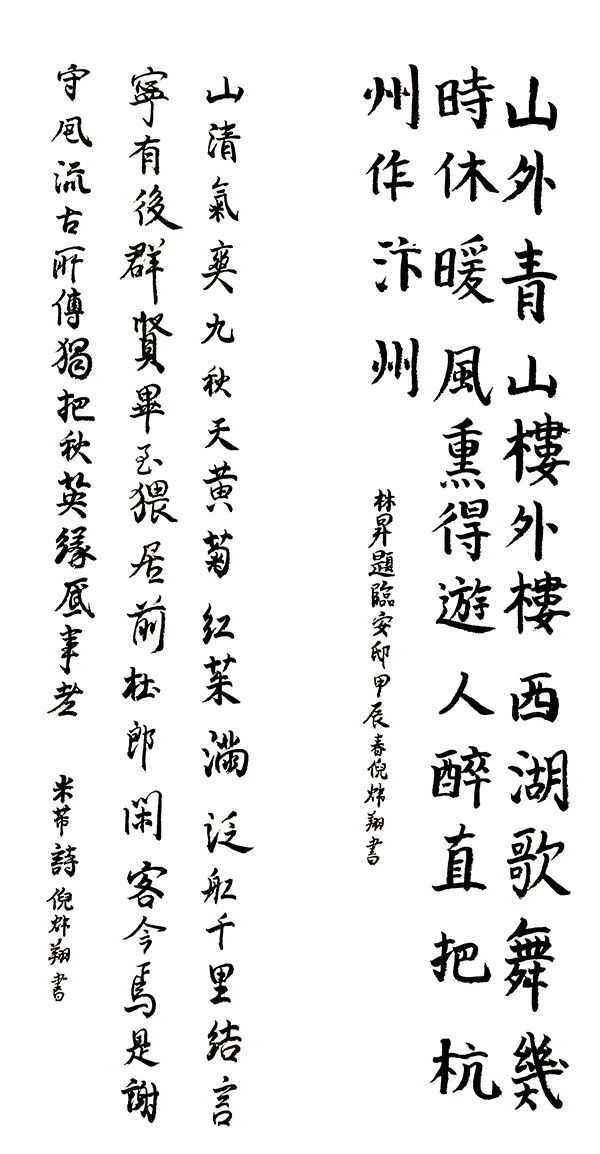 山外青山樓外樓西湖歌舞幾
時休暖風熏得遊人醉直把杭
州作汴州
林昇題臨安邸甲辰春倪炜翔書
山清氣爽九秋天黃菊紅茱滿泛舡千里結言
寧有後群賢畢至猥居前杜郎閑客今焉是謝
守風流古所傳獨把秋英緣底事老
米芾詩倪炜翔書